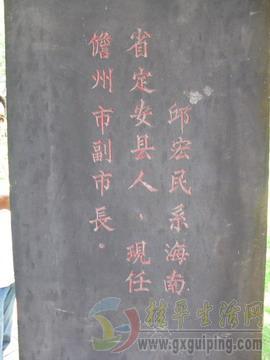 邱宏民系海南
省定安县人、現任
儋州市副市長。
桂平生活网
www.gxguiping.com